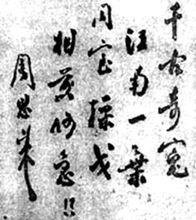 千古奇冤
江南一葉
同室操戈
相煎何急！！
周恩来